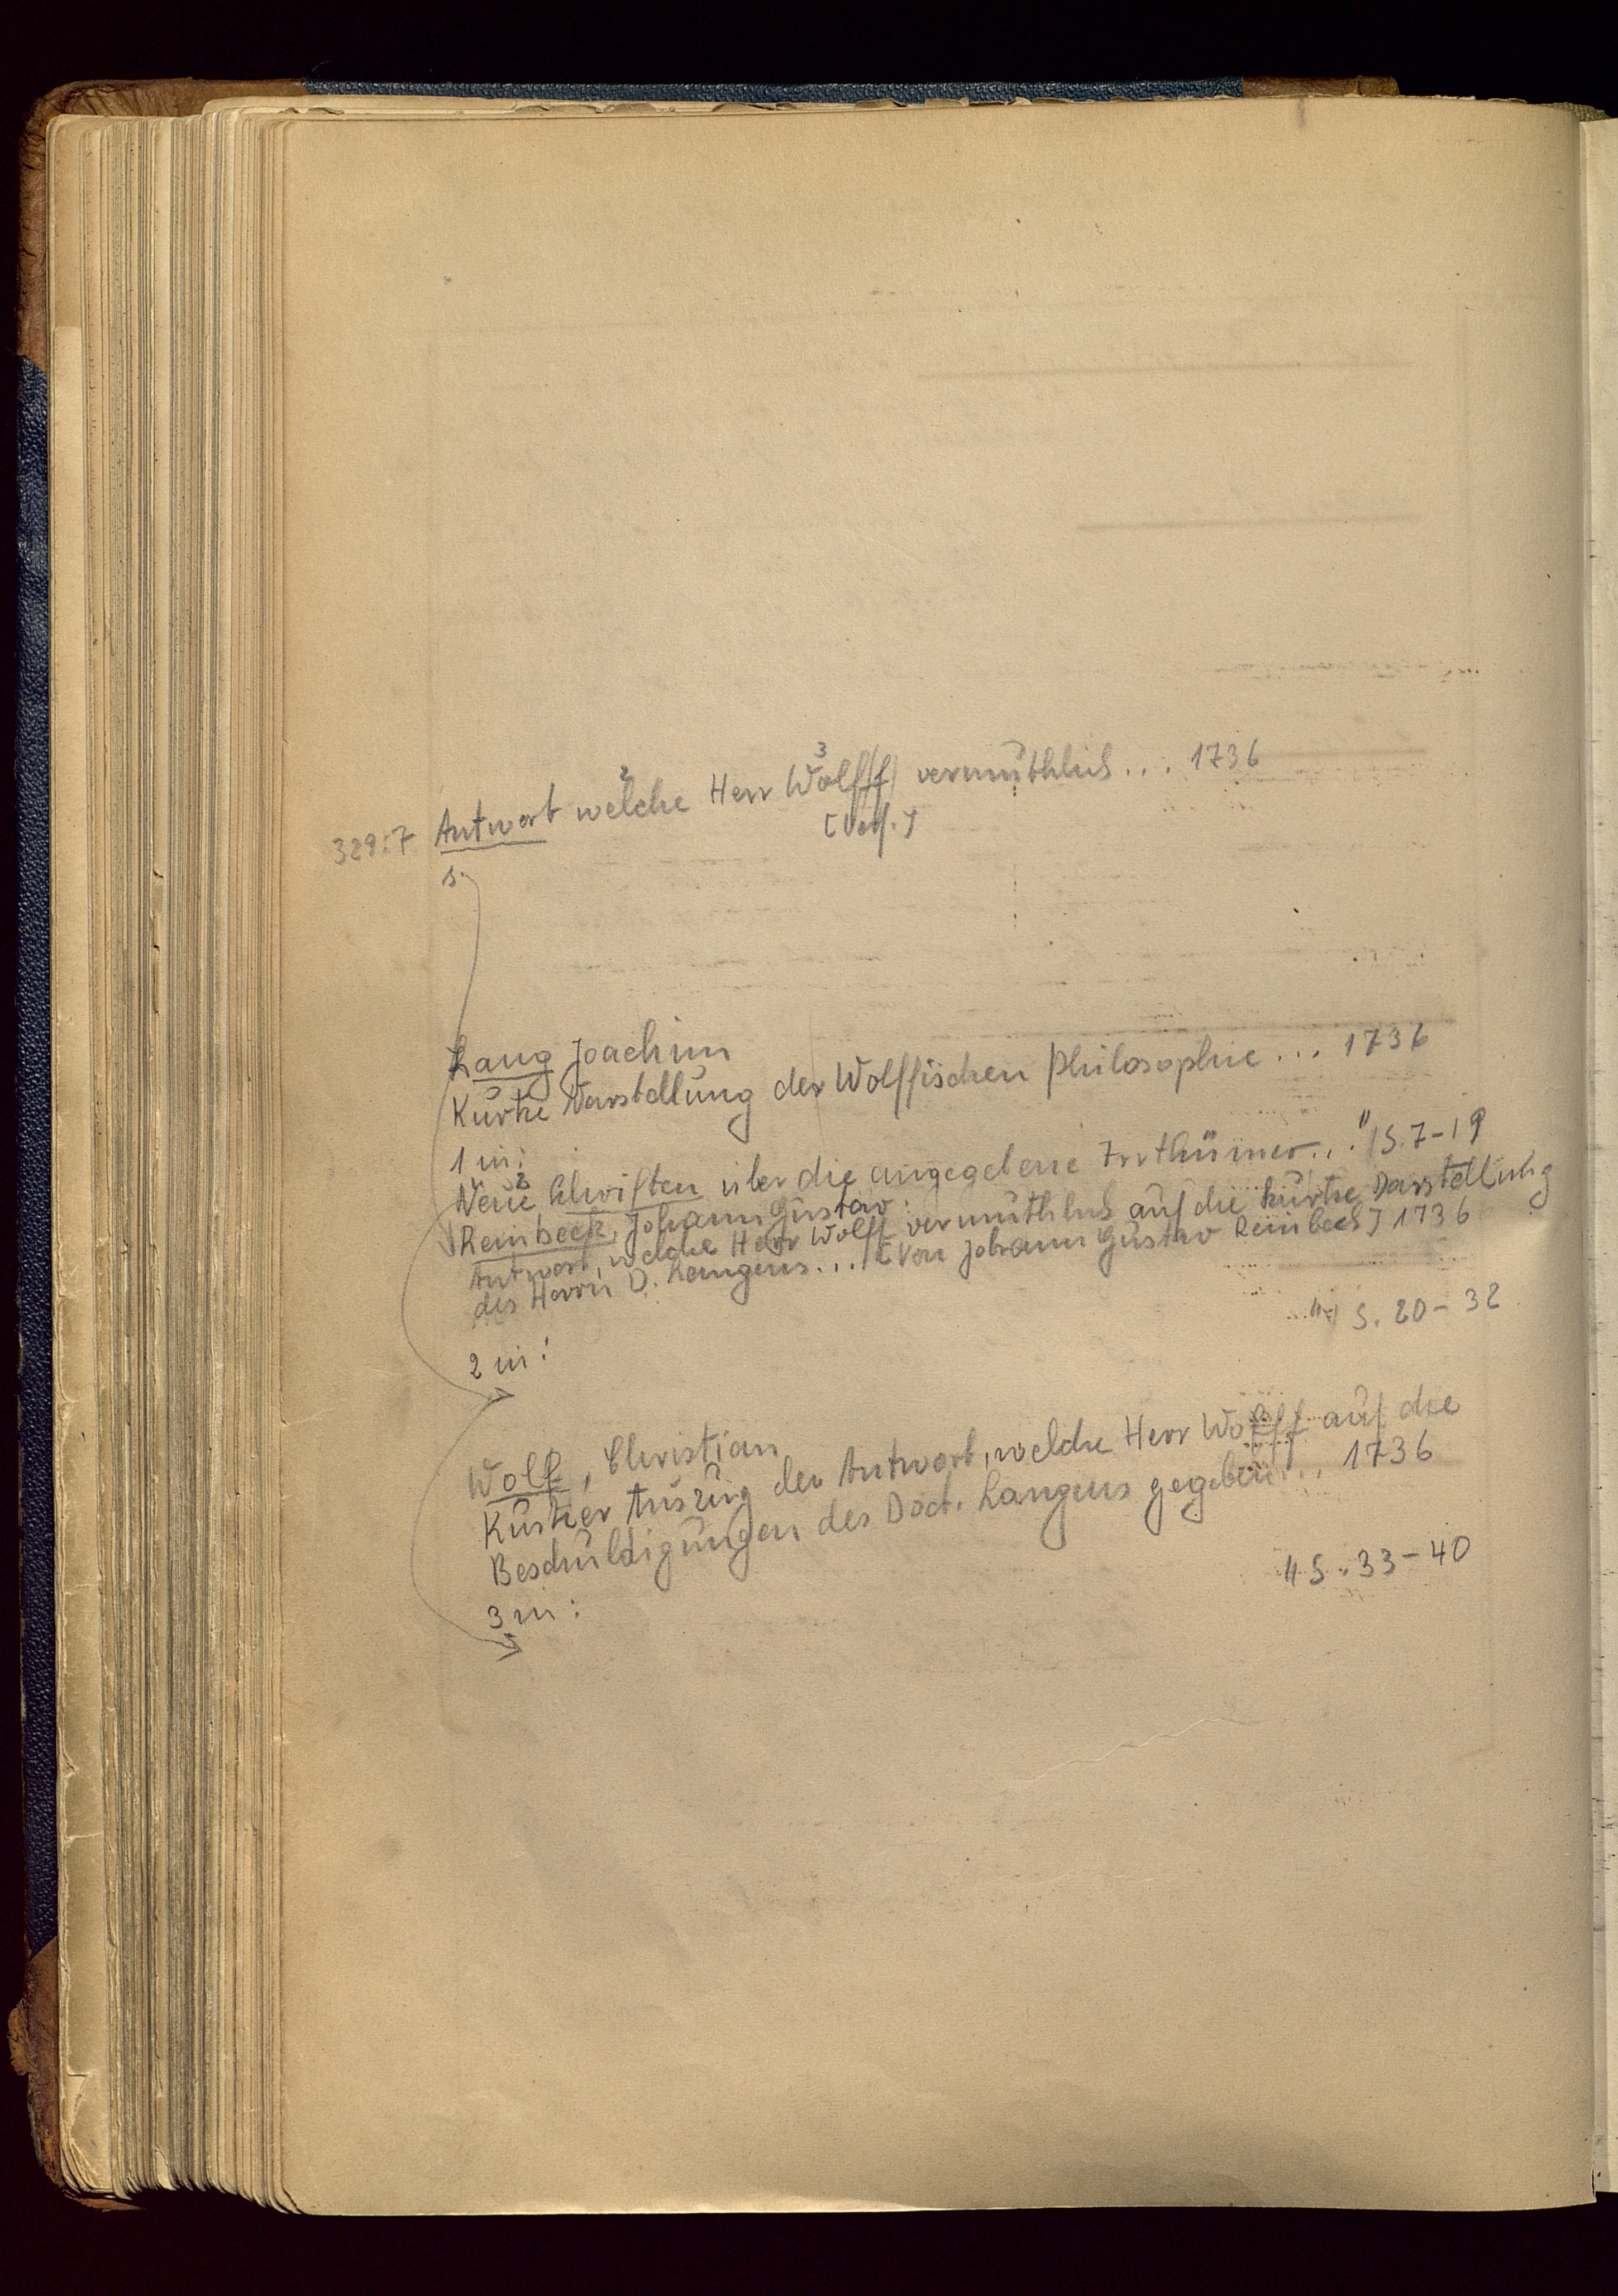 329:7 Antwort welche Herr Wolff vermuthlich... 1736
2 3
[Verf.]
s.
Lang Joachim
Kurtze Darstellung der Wolffischen Philosophie... 1736
1 in:
Neue Schriften über die angegebene Irrthümer..." S. 7-19
Reinbeck, Johann Gustav:
Antwort, welche Herr Wolff vermuthlich auf die kurtze Darstellung
des Herrn D. Langens... [von Johann Gustav Reinbeck] 1736
2 in:
"-" S. 20-32
Wolf, Christian
Kurtzer Auszug der Antwort, welche Herr Wolff auf die
Beschuldigungen des Doct. Langens gegeben... 1736
3 in:
" S. 33-40